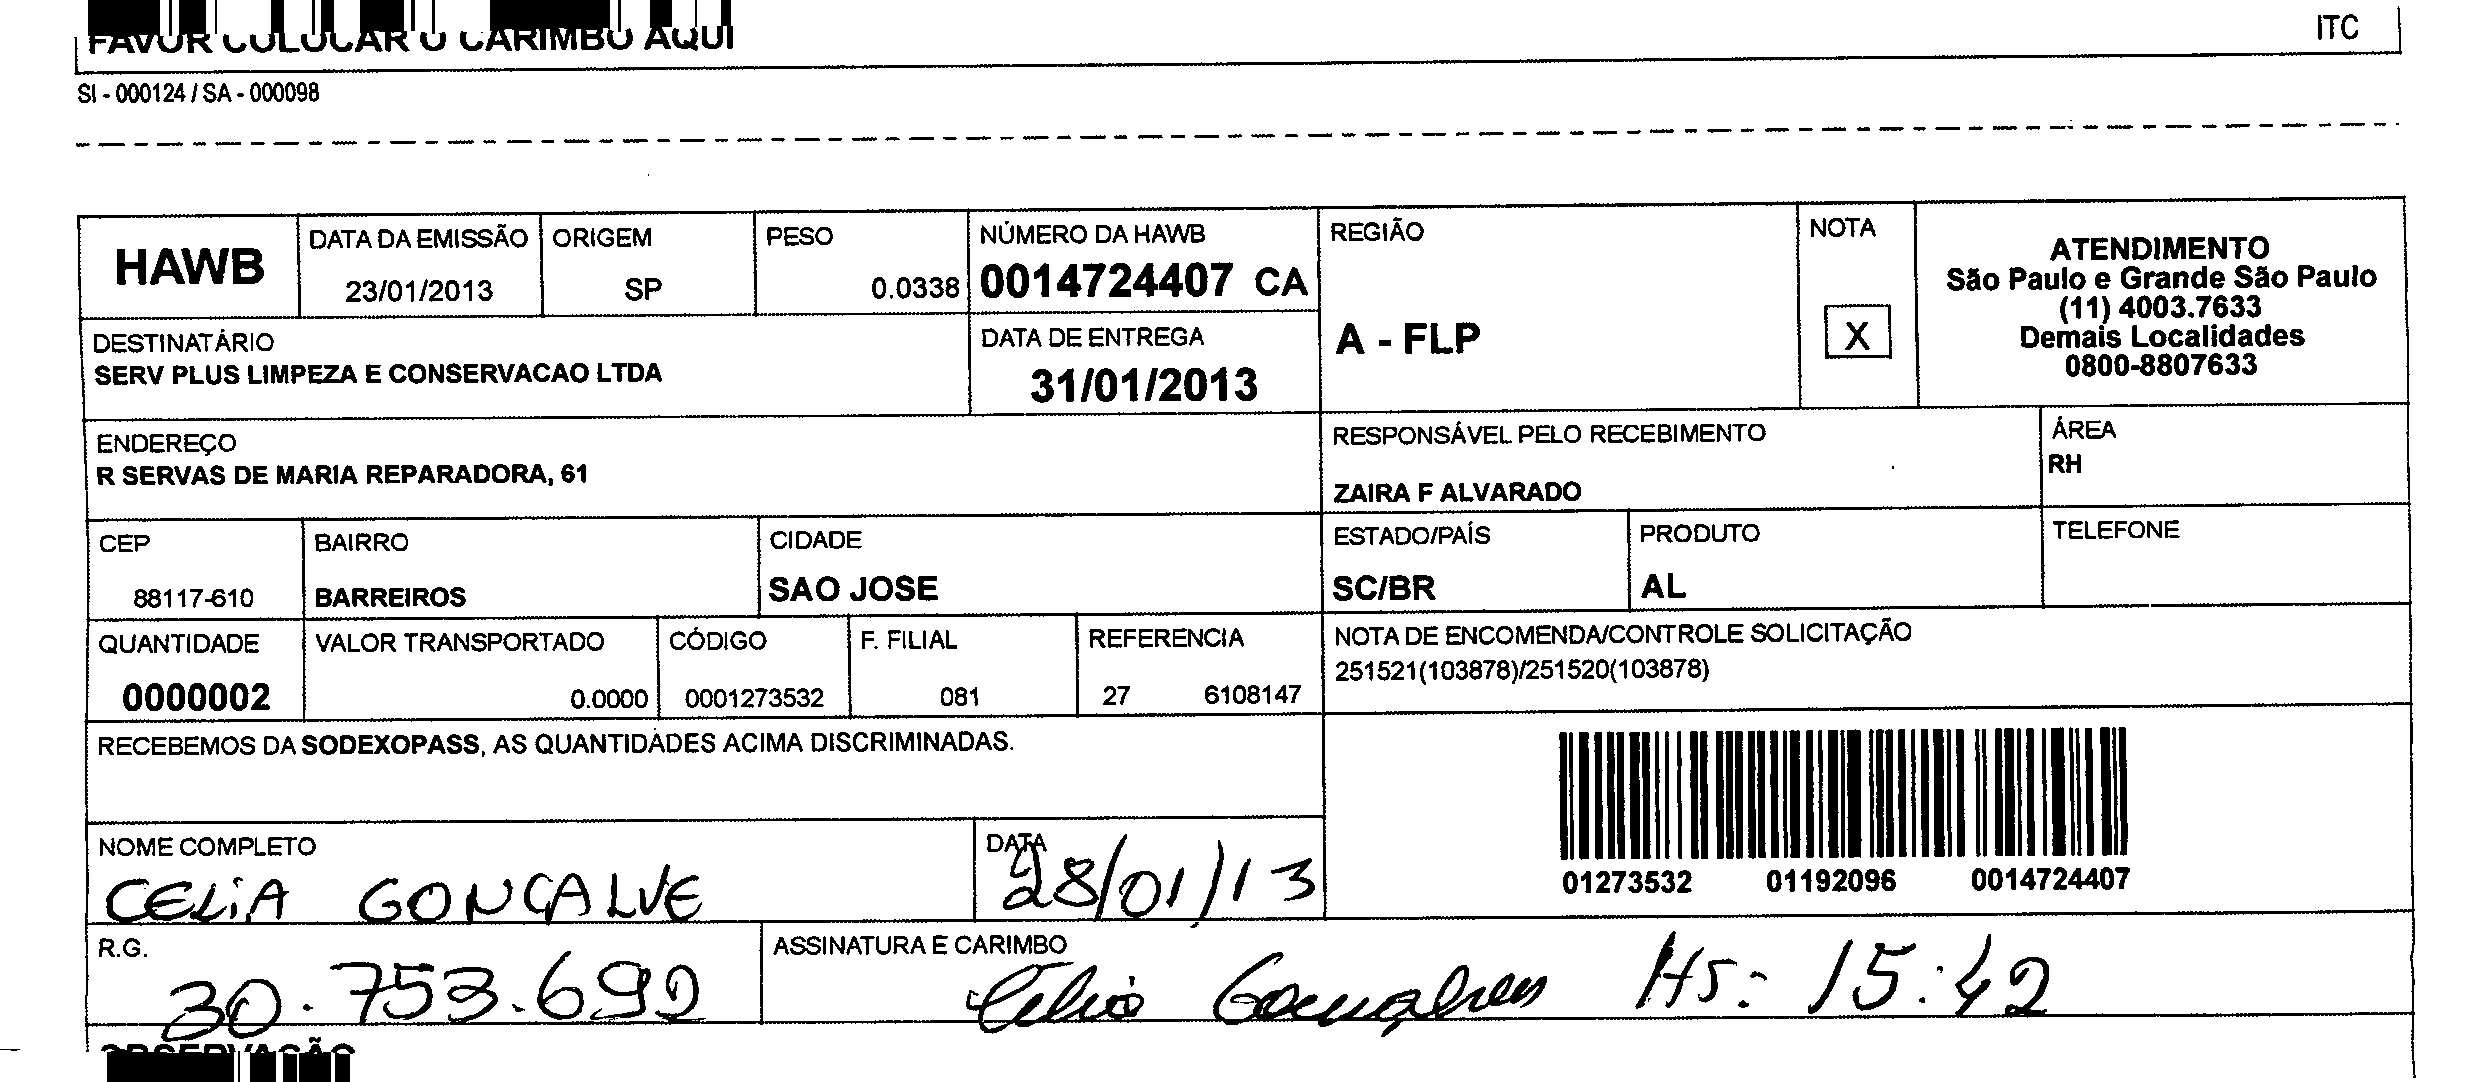 FAVOR COLOCAR O CARIMBO AQUI
ITC
SI - 000124 / SA - 000098
HAWB
DATA DA EMISSÃO
23/01/2013
ORIGEM
SP
PESO
0.0338
NÚMERO DA HAWB
0014724407 CA
REGIÃO
A - FLP
NOTA
X
ATENDIMENTO
São Paulo e Grande São Paulo
(11) 4003.7633
Demais Localidades
0800-8807633
DESTINATÁRIO
SERV PLUS LIMPEZA E CONSERVACAO LTDA
DATA DE ENTREGA
31/01/2013
ENDEREÇO
R SERVAS DE MARIA REPARADORA, 61
RESPONSÁVEL PELO RECEBIMENTO
ZAIRA F ALVARADO
ÁREA
RH
CEP
88117-610
BAIRRO
BARREIROS
CIDADE
SAO JOSE
ESTADO/PAÍS
SC/BR
PRODUTO
AL
TELEFONE
QUANTIDADE
0000002
VALOR TRANSPORTADO
0.0000
CÓDIGO
0001273532
F. FILIAL
081
REFERENCIA
27 6108147
NOTA DE ENCOMENDA/CONTROLE SOLICITAÇÃO
251521(103878)/251520(103878)
RECEBEMOS DA SODEXOPASS, AS QUANTIDADES ACIMA DISCRIMINADAS.
01273532 01192096 0014724407
NOME COMPLETO
CELIA GONÇALVE
DATA
28/01/13
R.G.
30.753.692
ASSINATURA E CARIMBO
Célia Gonçalves Hs: 15:42
OBSERVAÇÃO